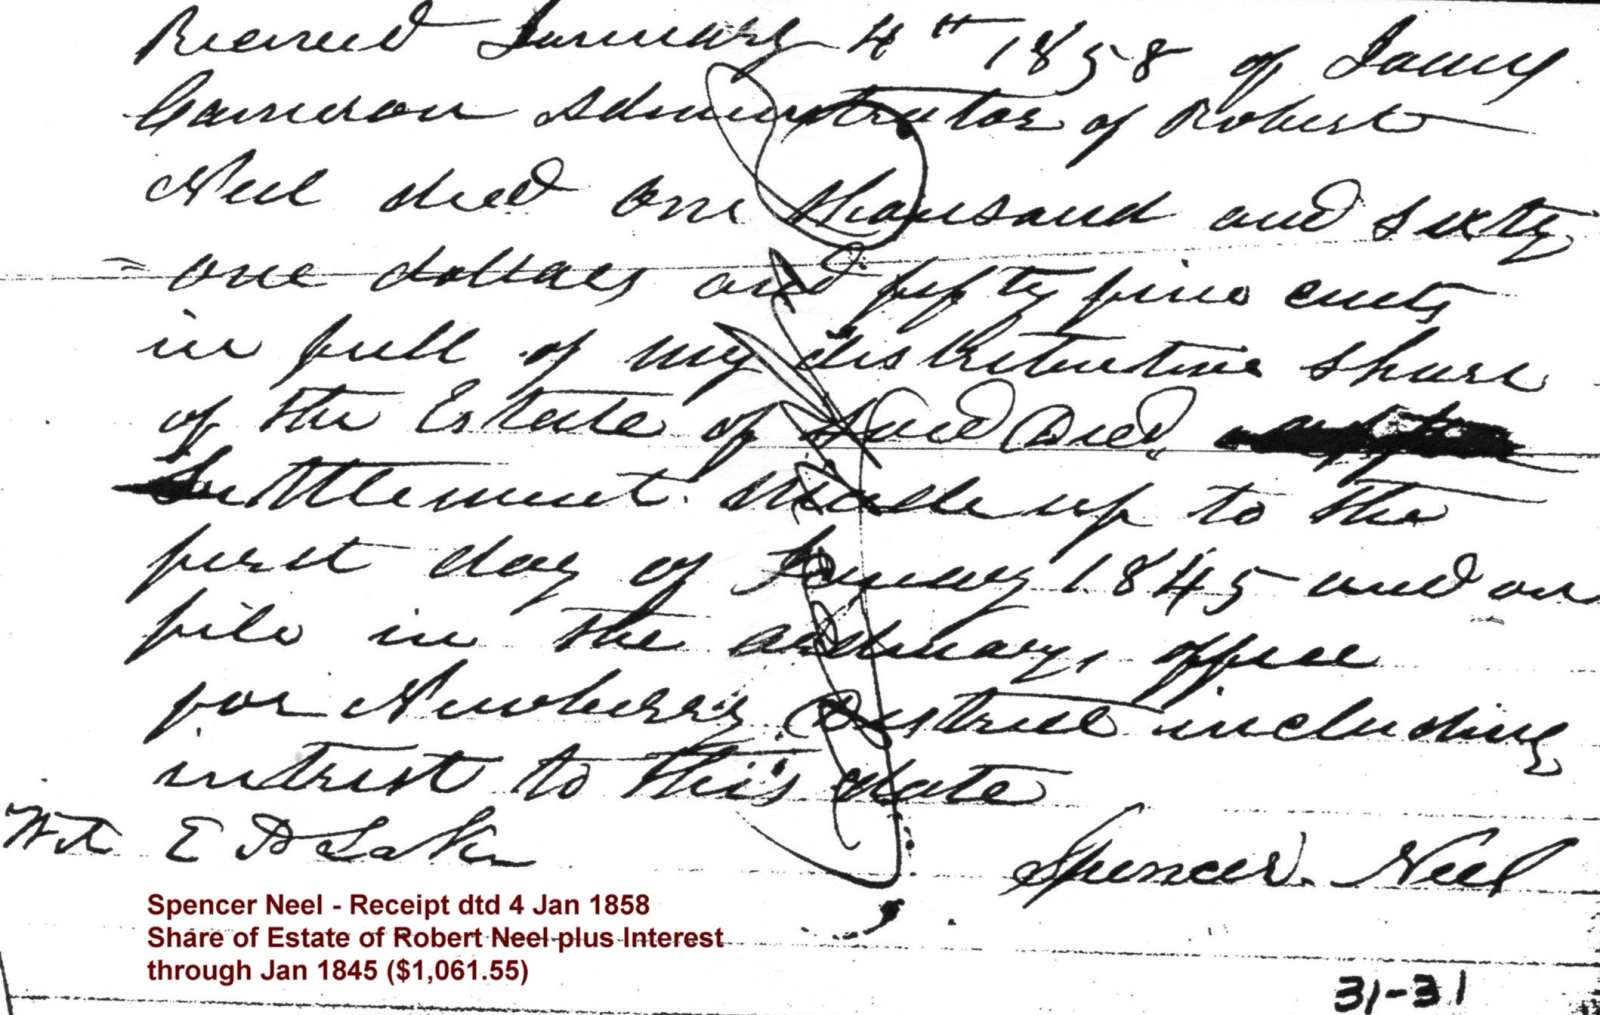 Received January 4th 1858 of James
Cameron Administrator of Robert
Neel decd one thousand and sixty
= one dollars and fifty five cents
in full of my distributive share
of the Estate of said decd,
Settlement made up to the
first day of January 1845 and on
file in the ordinarys office
for Newberry District including
intrest to this date
Wit E P Lake
Spencer Neel
Spencer Neel - Receipt dtd 4 Jan 1858
Share of Estate of Robert Neel plus Interest
through Jan 1845 ($1,061.55)
31-31